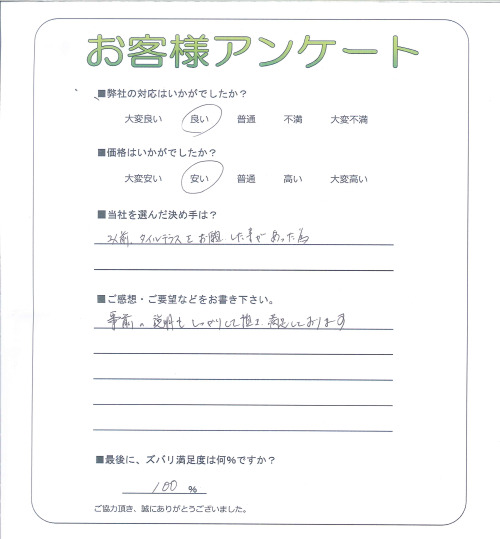 お客様アンケート
■弊社の対応はいかがでしたか？
大変良い 良い 普通 不満 大変不満
■価格はいかがでしたか？
大変安い 安い 普通 高い 大変高い
■当社を選んだ決め手は？
以前、タイルテラスをお願いした事があった為
■ご感想・ご要望などをお書き下さい。
事前の説明もしっかりして頂き満足しております
■最後に、ズバリ満足度は何％ですか？
100 %
ご協力頂き、誠にありがとうございました。